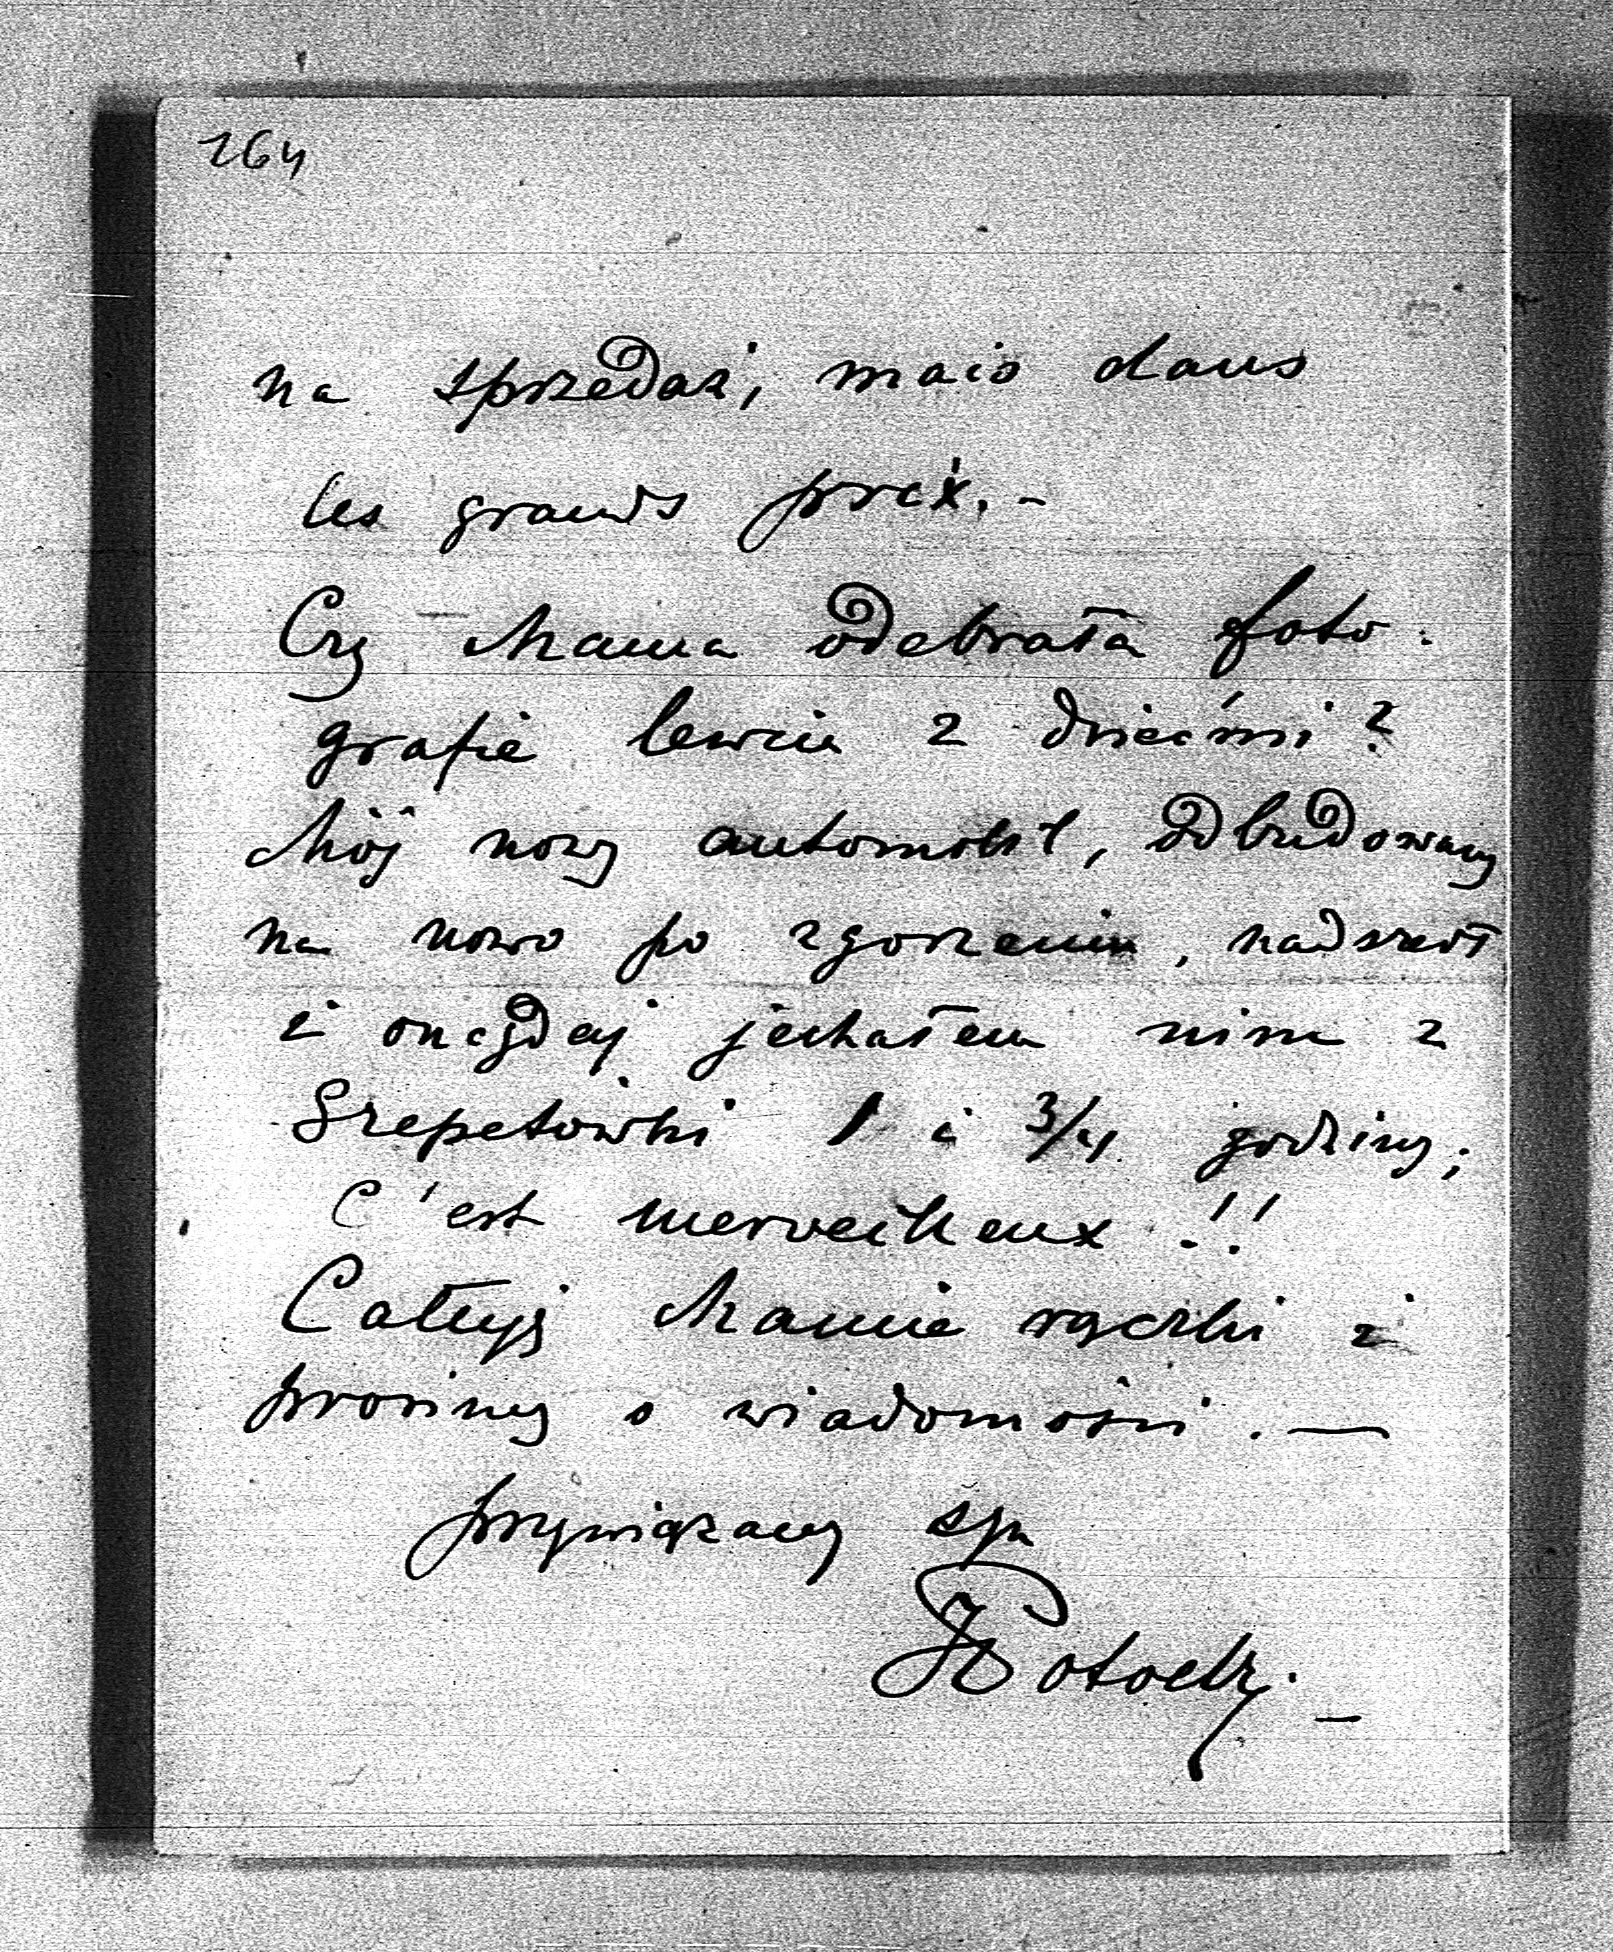 164
na sprzedaż, mais dans
les grands prix. -
Czy Mama odebrała foto-
grafie lewcia z dziećmi?
Mój nowy automobil, odbudowany
na nowo po zgorzeniu, nadszedł
i onegdaj jechałem nim z
Szepetówki 1 i 3/4 godziny;
C'est merveilleux!!
Całuję Mamie rączki i
prosimy o wiadomości. —
przywiązany syn
JPotocki. —